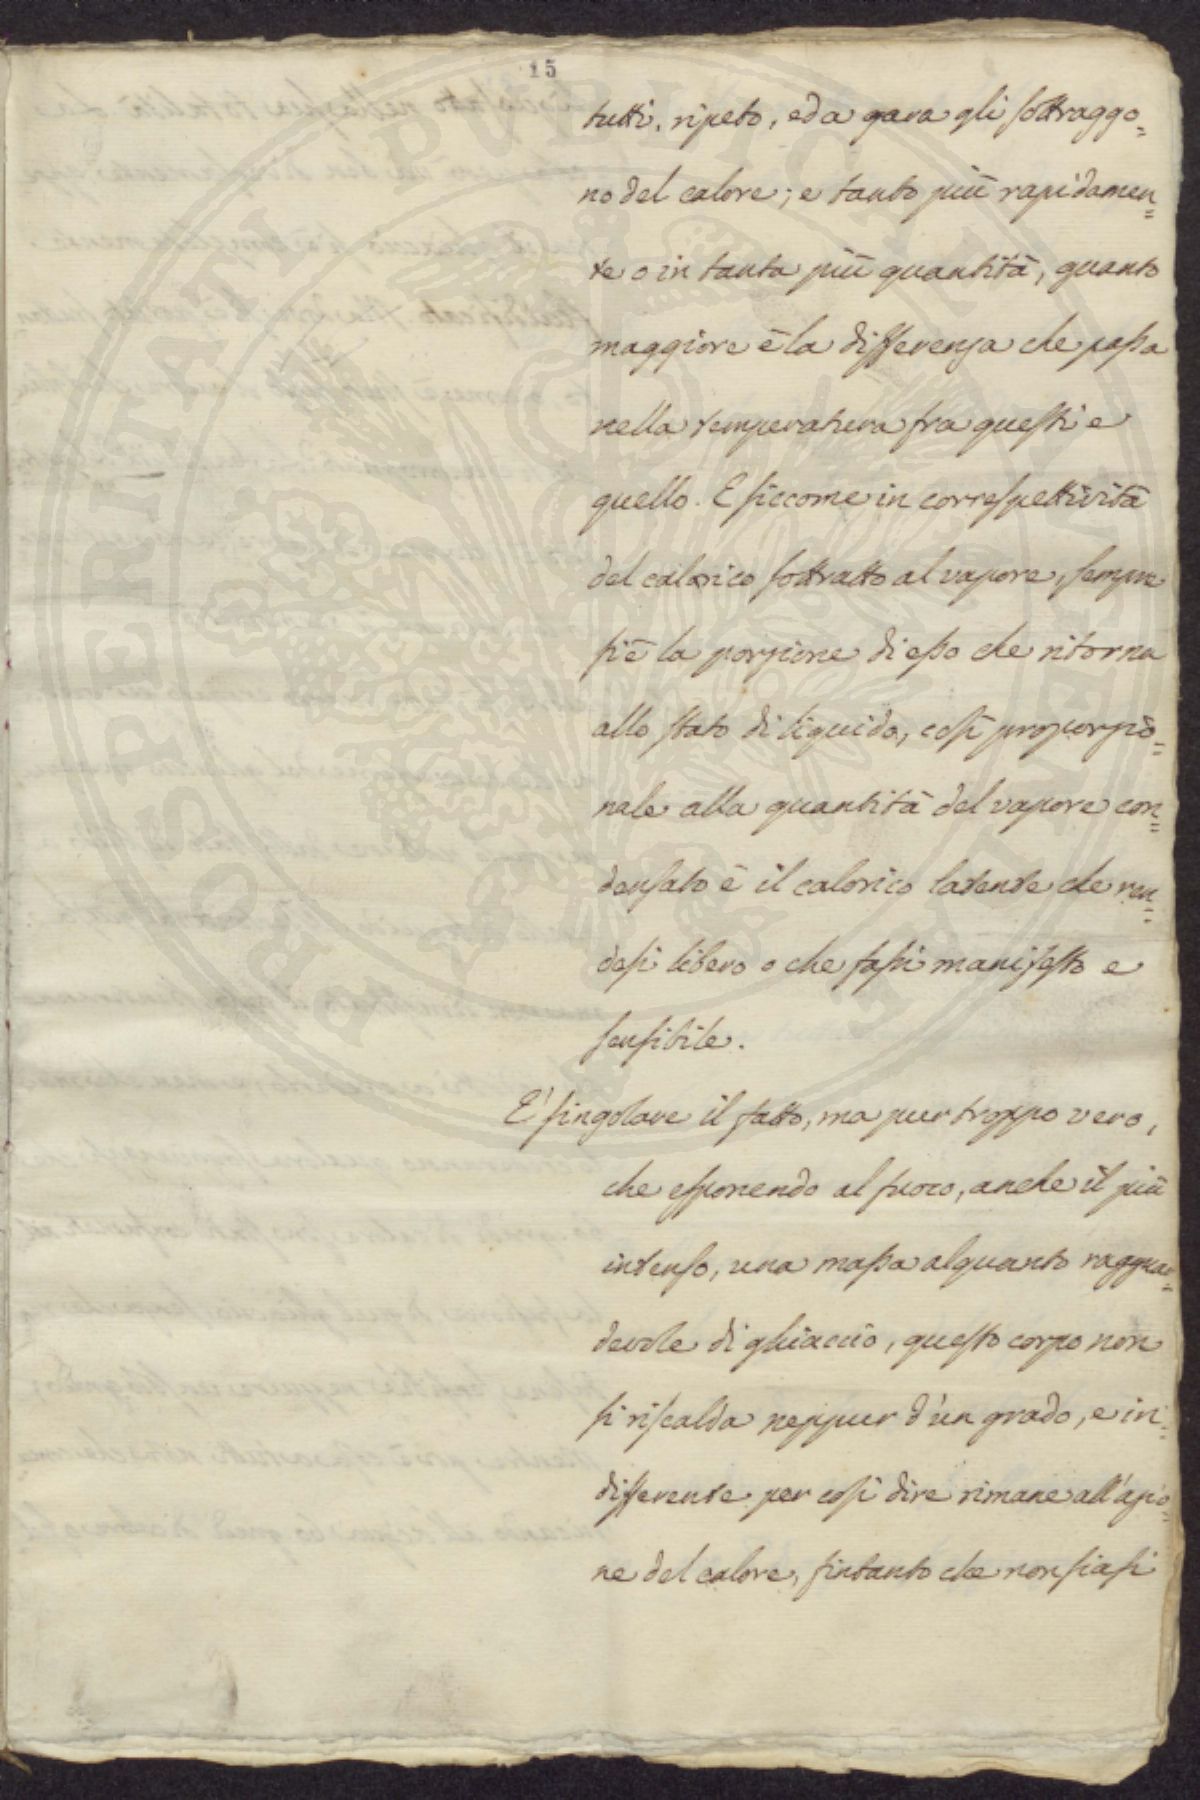 15
tutti, ripeto, ed a gara gli sottraggo=
no del calore; e tanto più rapidamen=
te o in tanta più quantità, quanto
maggiore è la differenza che passa
nella temperatura fra questi e
quello. E siccome in correspettività
del calorico sottratto al vapore, sempre
si è la porzione di esso che ritorna
allo stato di liquido, così proporzio=
nale alla quantità del vapore con=
densato è il calorico latente che ren=
desi libero o che fassi manifesto e
sensibile.
E' singolare il fatto, ma pur troppo vero,
che esponendo al fuoco, anche il più
intenso, una massa alquanto ragguar=
devole di ghiaccio, questo corpo non
si riscalda neppur d'un grado, e in=
differente per così dire rimane all'azio=
ne del calore, sintanto che non siasi
PROSPERITATI PUBLICAE